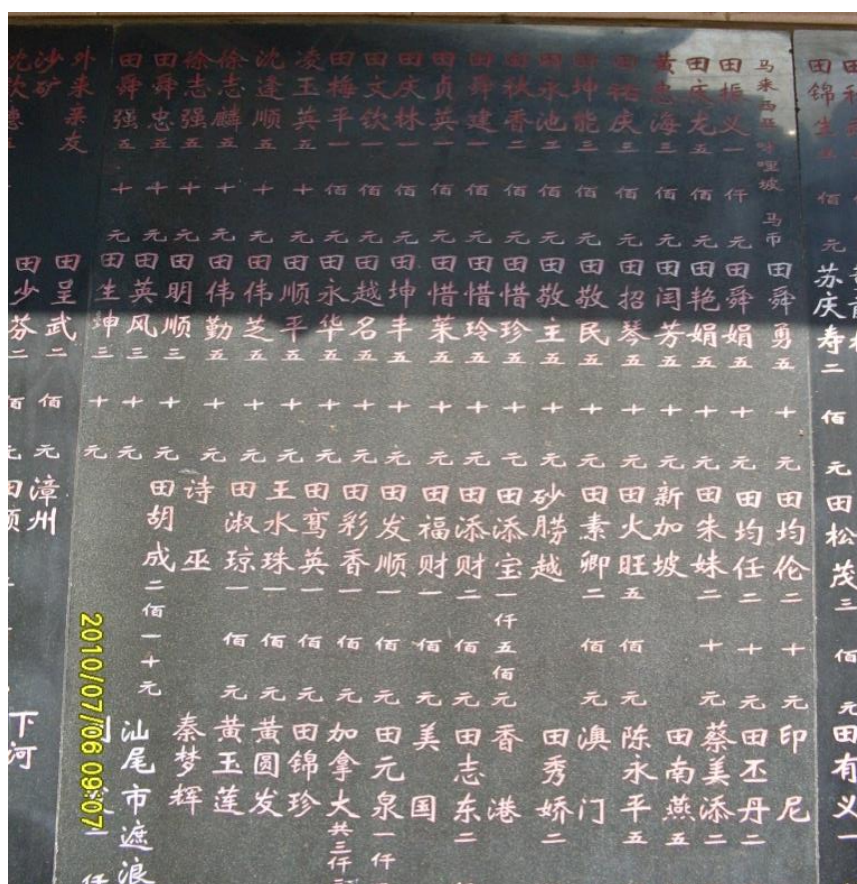 田錦生五佰元
苏庆寿二佰元
田松茂三佰元
田有义一
马来西亚 哩坡 马币
田振义一仟元
田庆龙五佰元
黄忠海三佰元
田祐庆三佰元
田坤能三佰元
田永池二佰元
田秋香二佰元
田舜建一佰元
田贞英一佰元
田庆林一佰元
田文钦一佰元
田梅平一佰元
凌玉英五十元
沈逢顺五十元
徐志麟五十元
徐志强五十元
田舜忠五十元
田舜强五十元
田舜勇五十元
田舜娟五十元
田艳娟五十元
田闰芳五十元
田招琴五十元
田敬民五十元
田敬主五十元
田惜珍五十元
田惜玲五十元
田惜茱五十元
田坤丰五十元
田越名五十元
田永华五十元
田顺平五十元
田伟芝五十元
田伟勤五十元
田明顺三十元
田英风三十元
田生坤三十元
田均伦二十元
田均任二十元
田朱妹二十元
新加坡
田火旺五佰元
田素卿二佰元
砂朥越
田添宝一仟五佰元
田添财二佰元
田福财一佰元
田发顺一佰元
田彩香一佰元
田鸾英一佰元
王水珠一佰元
田淑琼一佰元
诗巫
田胡成二佰一十元
印尼
田丕丹二
蔡美添二
田南燕五
陈永平五
澳门
田秀娇二
香港
田志东二
美国
田元泉一仟
加拿大共三仟
田锦珍
黄圆发
黄玉莲
秦梦辉
汕尾市遮浪
外来亲友
沙矿
田呈武二佰元
田少芬二佰元
漳州
下河
2010/07/06 09:07